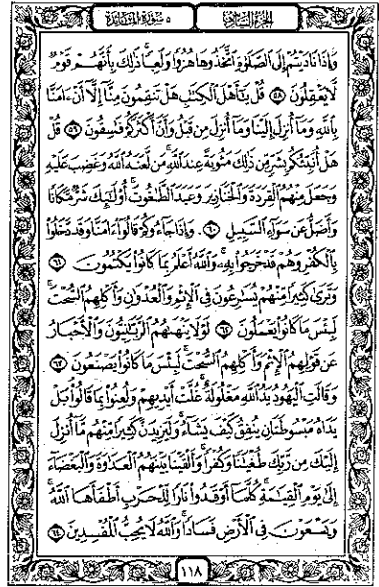 الجزء السادس ٥ سورة المائدة
وَإِذَا نَادَيْتُمْ إِلَى الصَّلَوٰةِ اتَّخَذُوهَا هُزُوًا وَلَعِبًا ذَٰلِكَ بِأَنَّهُمْ قَوْمٌ
لَّا يَعْقِلُونَ ٥٨ قُلْ يَٰٓأَهْلَ الْكِتَٰبِ هَلْ تَنقِمُونَ مِنَّآ إِلَّآ أَنْ ءَامَنَّا
بِاللَّهِ وَمَآ أُنزِلَ إِلَيْنَا وَمَآ أُنزِلَ مِن قَبْلُ وَأَنَّ أَكْثَرَكُمْ فَٰسِقُونَ ٥٩ قُلْ
هَلْ أُنَبِّئُكُم بِشَرٍّ مِّن ذَٰلِكَ مَثُوبَةً عِندَ اللَّهِ مَن لَّعَنَهُ اللَّهُ وَغَضِبَ عَلَيْهِ
وَجَعَلَ مِنْهُمُ الْقِرَدَةَ وَالْخَنَازِيرَ وَعَبَدَ الطَّٰغُوتَ أُو۟لَٰٓئِكَ شَرٌّ مَّكَانًا
وَأَضَلُّ عَن سَوَآءِ السَّبِيلِ ٦٠ وَإِذَا جَآءُوكُمْ قَالُوٓا۟ ءَامَنَّا وَقَد دَّخَلُوا۟
بِالْكُفْرِ وَهُمْ قَدْ خَرَجُوا۟ بِهِ وَاللَّهُ أَعْلَمُ بِمَا كَانُوا۟ يَكْتُمُونَ ٦١
وَتَرَىٰ كَثِيرًا مِّنْهُمْ يُسَٰرِعُونَ فِي الْإِثْمِ وَالْعُدْوَٰنِ وَأَكْلِهِمُ السُّحْتَ
لَبِئْسَ مَا كَانُوا۟ يَعْمَلُونَ ٦٢ لَوْلَا يَنْهَىٰهُمُ الرَّبَّٰنِيُّونَ وَالْأَحْبَارُ
عَن قَوْلِهِمُ الْإِثْمَ وَأَكْلِهِمُ السُّحْتَ لَبِئْسَ مَا كَانُوا۟ يَصْنَعُونَ ٦٣
وَقَالَتِ الْيَهُودُ يَدُ اللَّهِ مَغْلُولَةٌ غُلَّتْ أَيْدِيهِمْ وَلُعِنُوا۟ بِمَا قَالُوا۟ بَلْ
يَدَاهُ مَبْسُوطَتَانِ يُنفِقُ كَيْفَ يَشَآءُ وَلَيَزِيدَنَّ كَثِيرًا مِّنْهُم مَّآ أُنزِلَ
إِلَيْكَ مِن رَّبِّكَ طُغْيَٰنًا وَكُفْرًا وَأَلْقَيْنَا بَيْنَهُمُ الْعَدَٰوَةَ وَالْبَغْضَآءَ
إِلَىٰ يَوْمِ الْقِيَٰمَةِ كُلَّمَآ أَوْقَدُوا۟ نَارًا لِّلْحَرْبِ أَطْفَأَهَا اللَّهُ
وَيَسْعَوْنَ فِي الْأَرْضِ فَسَادًا وَاللَّهُ لَا يُحِبُّ الْمُفْسِدِينَ ٦٤
١١٨